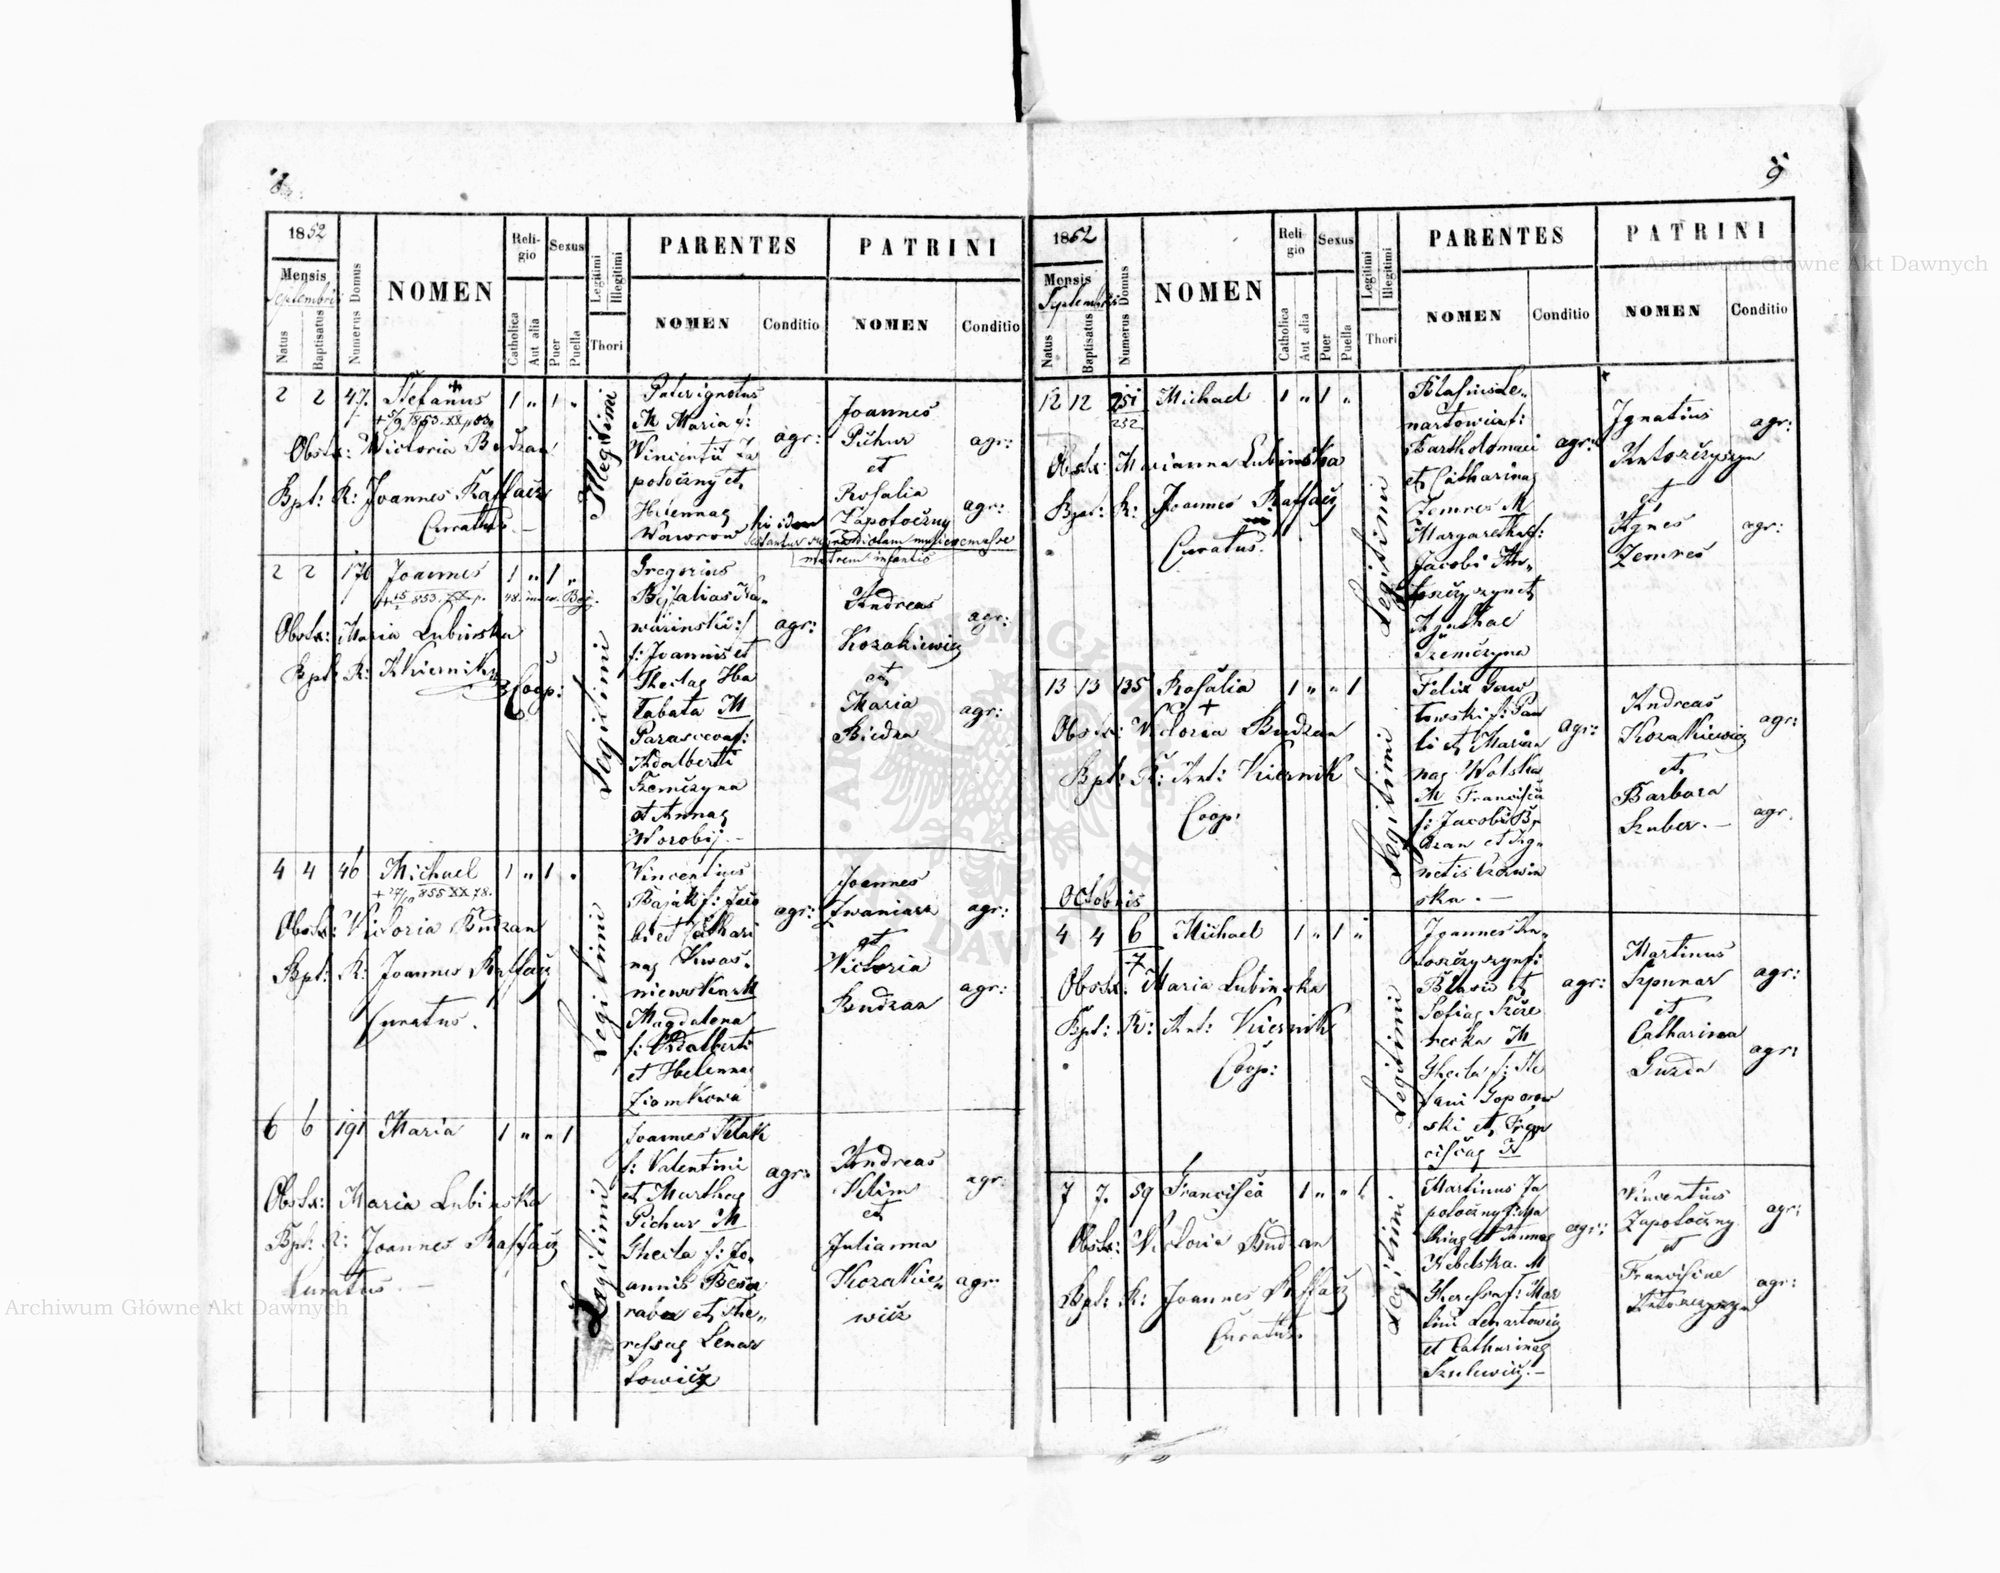 8.
1852
Mensis
Septembris
Natus
Baptisatus
Numerus Domus
NOMEN
Reli-
gio
Catholica
Aut alia
Sexus
Puer
Puella
Legitimi
Illegitimi
Thori
PARENTES
NOMEN
Conditio
PATRINI
NOMEN
Conditio
2 2 47. Stefanus 1 " 1 "
Obstx: Victoria Budzan
Bpt: R: Joannes Raffacz
Curatus. –
Illegitimi
Pater ignotus
M Maria f:
Vincentii Za
potoczny et
Helennae
Wawrow
agr:
Joannes
Pichur
et
Rosalia
Zapotoczny
agr:
agr:
matrem infantis
2 2 176 Joannes 1 " 1 "
Obstx: Maria Lubinska
Bpt: R: A Kiernik
Coop:
Legitimi
Gregorius
f: Joannis et
Theclae Ha
labata M
Parasceva f:
Adalberti
Tremczyna
et Annae
Worobij. –
agr:
Andreas
Kozakiewicz
et
Maria
Biedra
agr:
agr:
4 4 46 Michael 1 " 1 "
Obstx: Victoria Budzan
Bpt: R: Joannes Raffacz
Curatus.
Legitimi
Vincentius
Bajak f: Jaco
bi et Cathari
nae Kwas-
niewska M
Magdalena
f: Adalberti
et Helennae
Ziomkowa
agr:
Joannes
Iwaniasz
et
Victoria
Budzan
agr:
agr:
6 6 191 Maria 1 " " 1
Obstx: Maria Lubinska
Bpt: R: Joannes Raffacz
Curatus –
Legitimi
Joannes
f: Valentini
et Marthae
Pichur M
Thecla f: Jo-
annis Besa
raba et The-
ressae Lenar
towicz
agr:
Andreas
Klim
et
Julianna
Kozakie-
wicz
agr:
agr:
9
1852
Mensis
Septembris
Natus
Baptisatus
Numerus Domus
NOMEN
Reli-
gio
Catholica
Aut alia
Sexus
Puer
Puella
Legitimi
Illegitimi
Thori
PARENTES
NOMEN
Conditio
PATRINI
NOMEN
Conditio
12 12 251 Michael 1 " 1 "
252
Obstx: Marianna Lubinska
Bpt: R: Joannes Raffacz
Curatus.
Legitimi
Blasius Le-
nartowicz f:
Bartholomaei
et Catharinae
Zemres M
Margaretha f:
Jacobi An-
toszczyszyn et
Agathae
Tremczyna
agr:
Ignatius
Antoszczyszyn
et
Agnes
Zemres
agr:
agr:
13 13 135 Rosalia 1 " " 1
Obstx: Victoria Budzan
Bpt: R: Ant: Kiernik
Coop:
Legitimi
Felix Gaw
lowski f: Pau
li et Marian
nae Wolska
M Francisca
f: Jacobi Bu
dzan et Ag-
netis
ska. –
agr:
Andreas
Kozakiewicz
et
Barbara
Szuber. –
agr:
agr.
Octobris
4 4 6 Michael 1 " 1 "
7
Obstx: Maria Lubinska
Bpt: R: Ant: Kiernik
Coop:
Legitimi
Joannes An-
toszczyszyn f:
Blasii et
Sofiae
M
Thecla f: Ste
fani Toporow
ski et Fran
ciscae
agr:
Martinus
Szpunar
et
Catharina
Guzda
agr:
agr:
7 7. 59 Francisca 1 " " 1
Obstx: Victoria Budzan
Bpt: R: Joannes Raffacz
Curatus.
Legitimi
Martinus Za
potoczny
et Annae
Nebelska. M
Theressa f: Mar
tini Lenartowicz
et Catharinae
Szulewicz. –
agr:
Vincentius
Zapotoczny
et
Antoszczyszyn
agr:
agr:
Archiwum Główne Akt Dawnych
Archiwum Główne Akt Dawnych